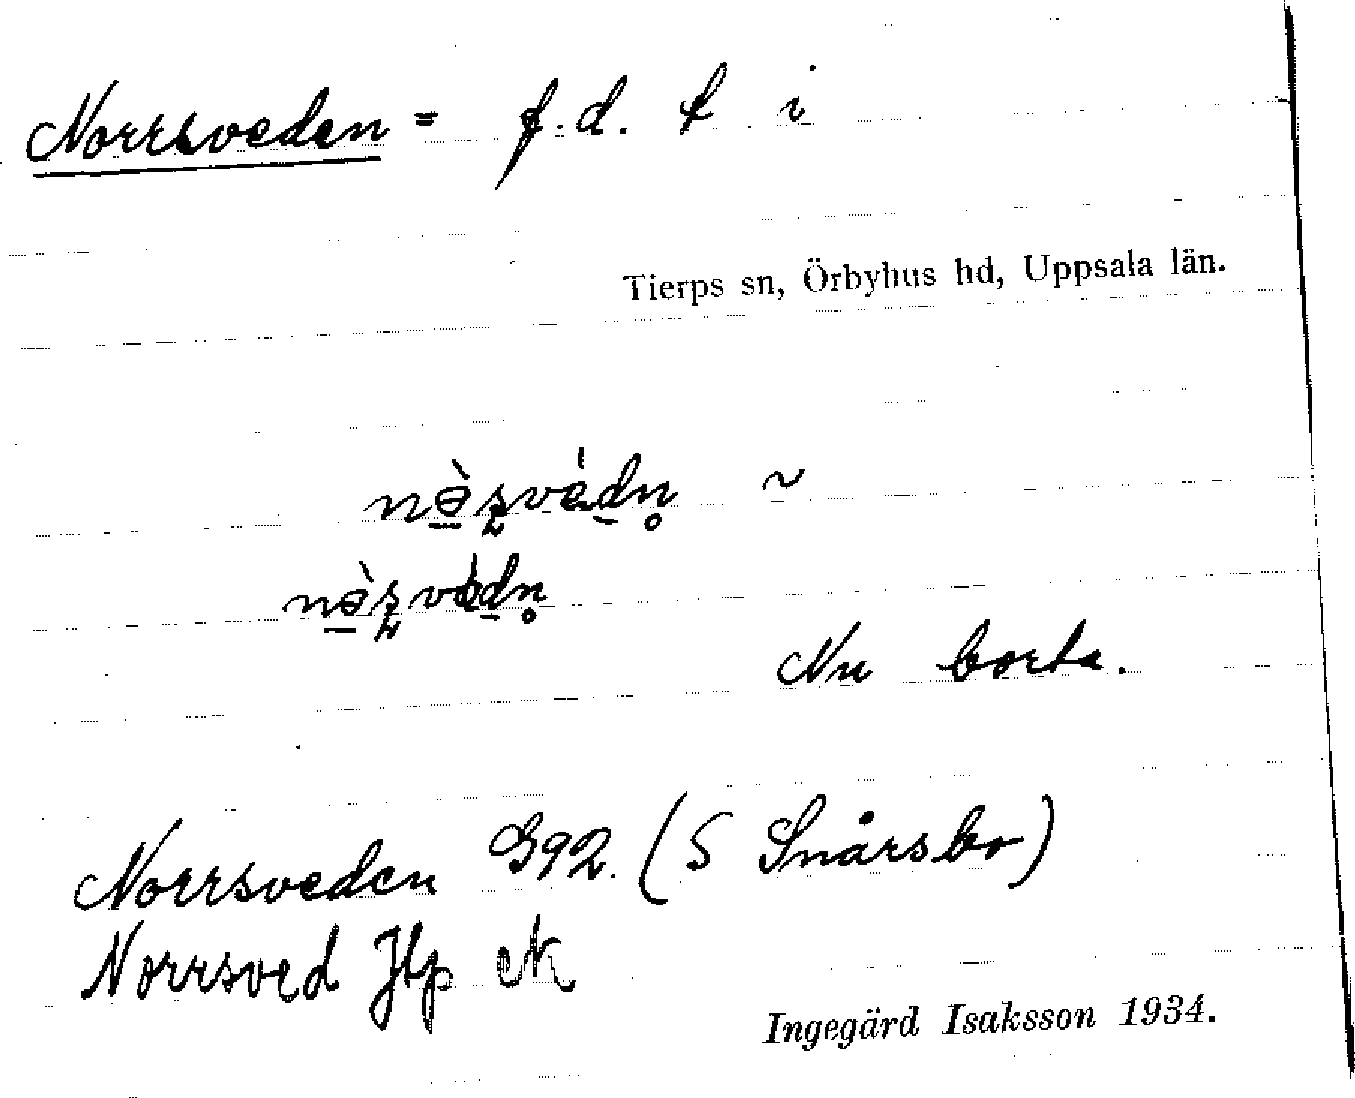 Norrsveden = f.d. t i
Tierps sn, Örbyhus hd, Uppsala län.
~
Nu borta.
Norrsveden G92. (S Snårsbo)
Norrsved Jlp ek
Ingegärd Isaksson 1934.